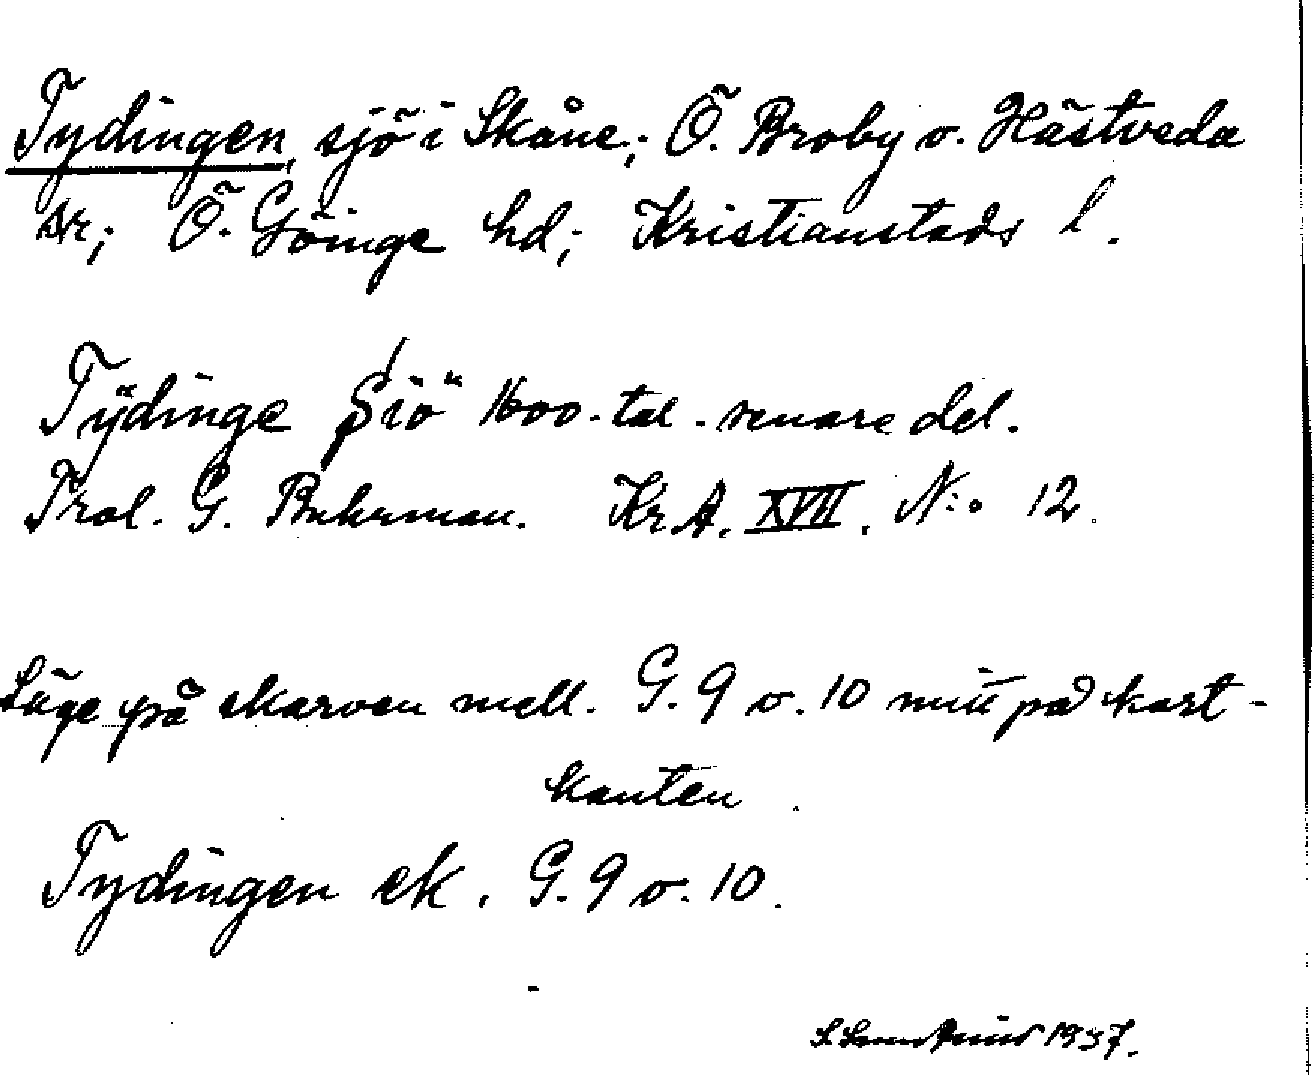 Tydingen, sjö i Skåne; Ö. Broby o. Hästveda
sr; Ö. Göinge hd; Kristianstads l.
Tÿdinge Siö 1600-tal - senare del.
Prol. G. Buhrman. Kr.A. XVII. N:o 12.
Läge på skarven mell. G. 9 o. 10 mitt på kart-
kanten
Tydingen ek. G. 9 o. 10.
1937.